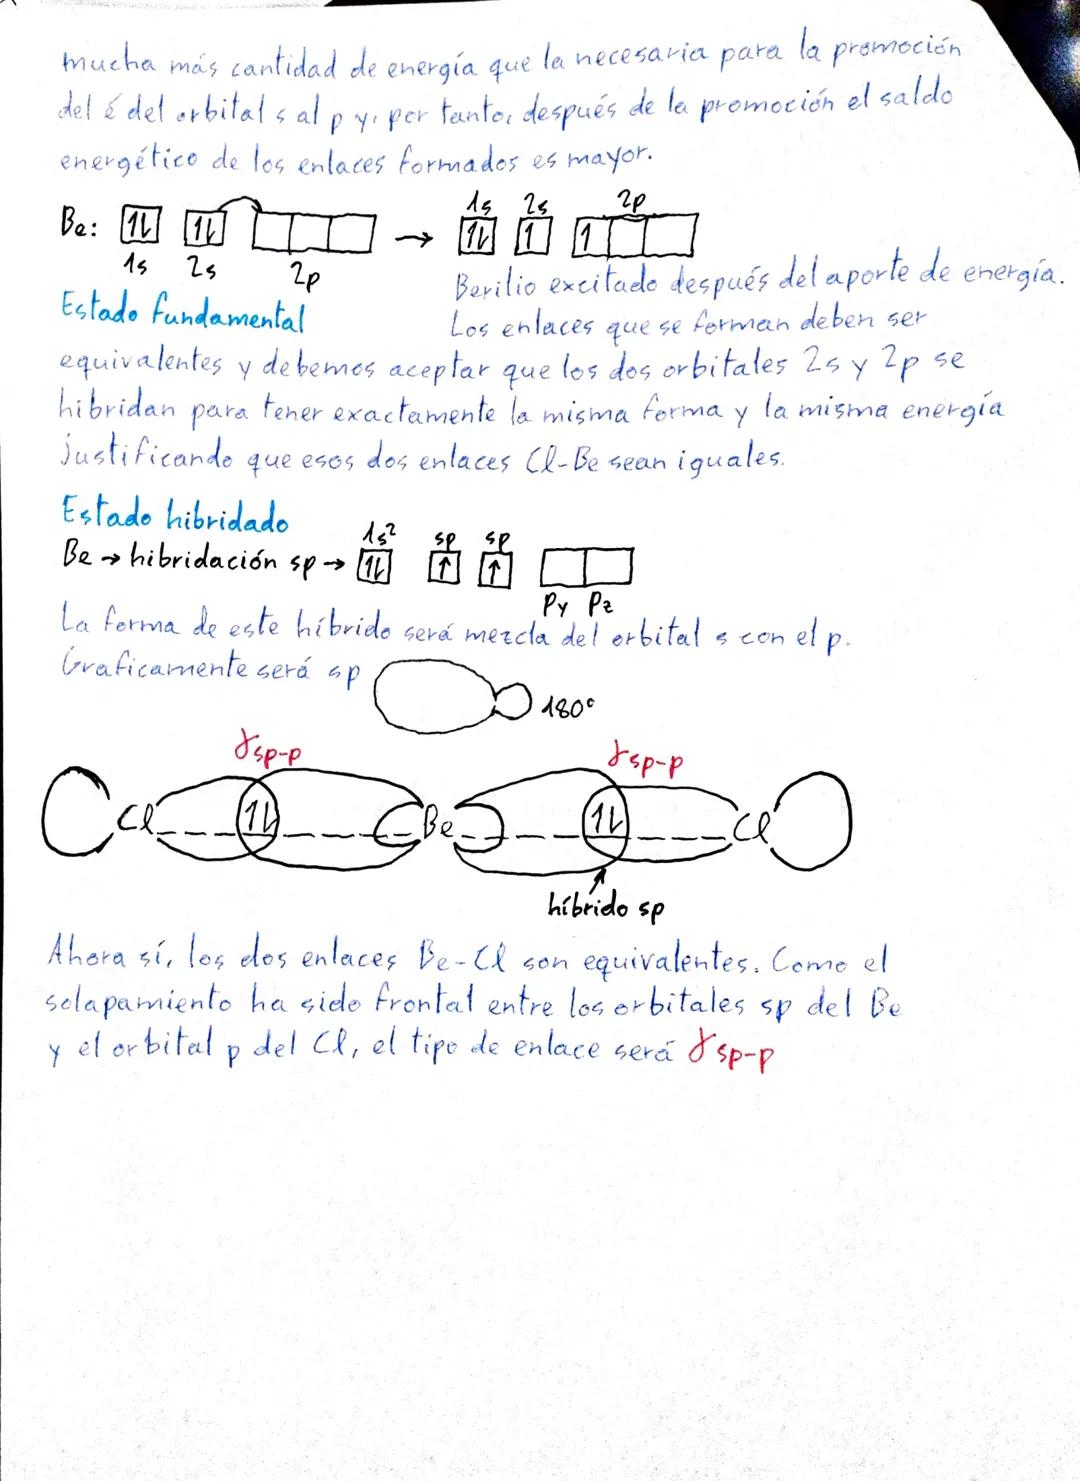 mucha más cantidad de energía que la necesaria para la promoción
del é del orbital s al p y, por tanto, después de la promoción el saldo
energético de los enlaces formados es mayor.
1s 2s 2p
Be: 1L 1L → 1L 1 1
1s 2s 2p
Berilio excitado después del aporte de energía.
Estado fundamental Los enlaces que se forman deben ser
equivalentes y debemos aceptar que los dos orbitales 2s y 2p se
hibridan para tener exactamente la misma forma y la misma energía
justificando que esos dos enlaces Cl-Be sean iguales.
Estado hibridado
1s² sp sp
Be → hibridación sp → 1L ↑ ↑
Py Pz
La forma de este híbrido será mezcla del orbital s con el p.
Graficamente será sp
180°
γsp-p γsp-p
Cl 1L Be 1L Cl
híbrido sp
Ahora sí, los dos enlaces Be-Cl son equivalentes. Como el
solapamiento ha sido frontal entre los orbitales sp del Be
y el orbital p del Cl, el tipo de enlace será γsp-p